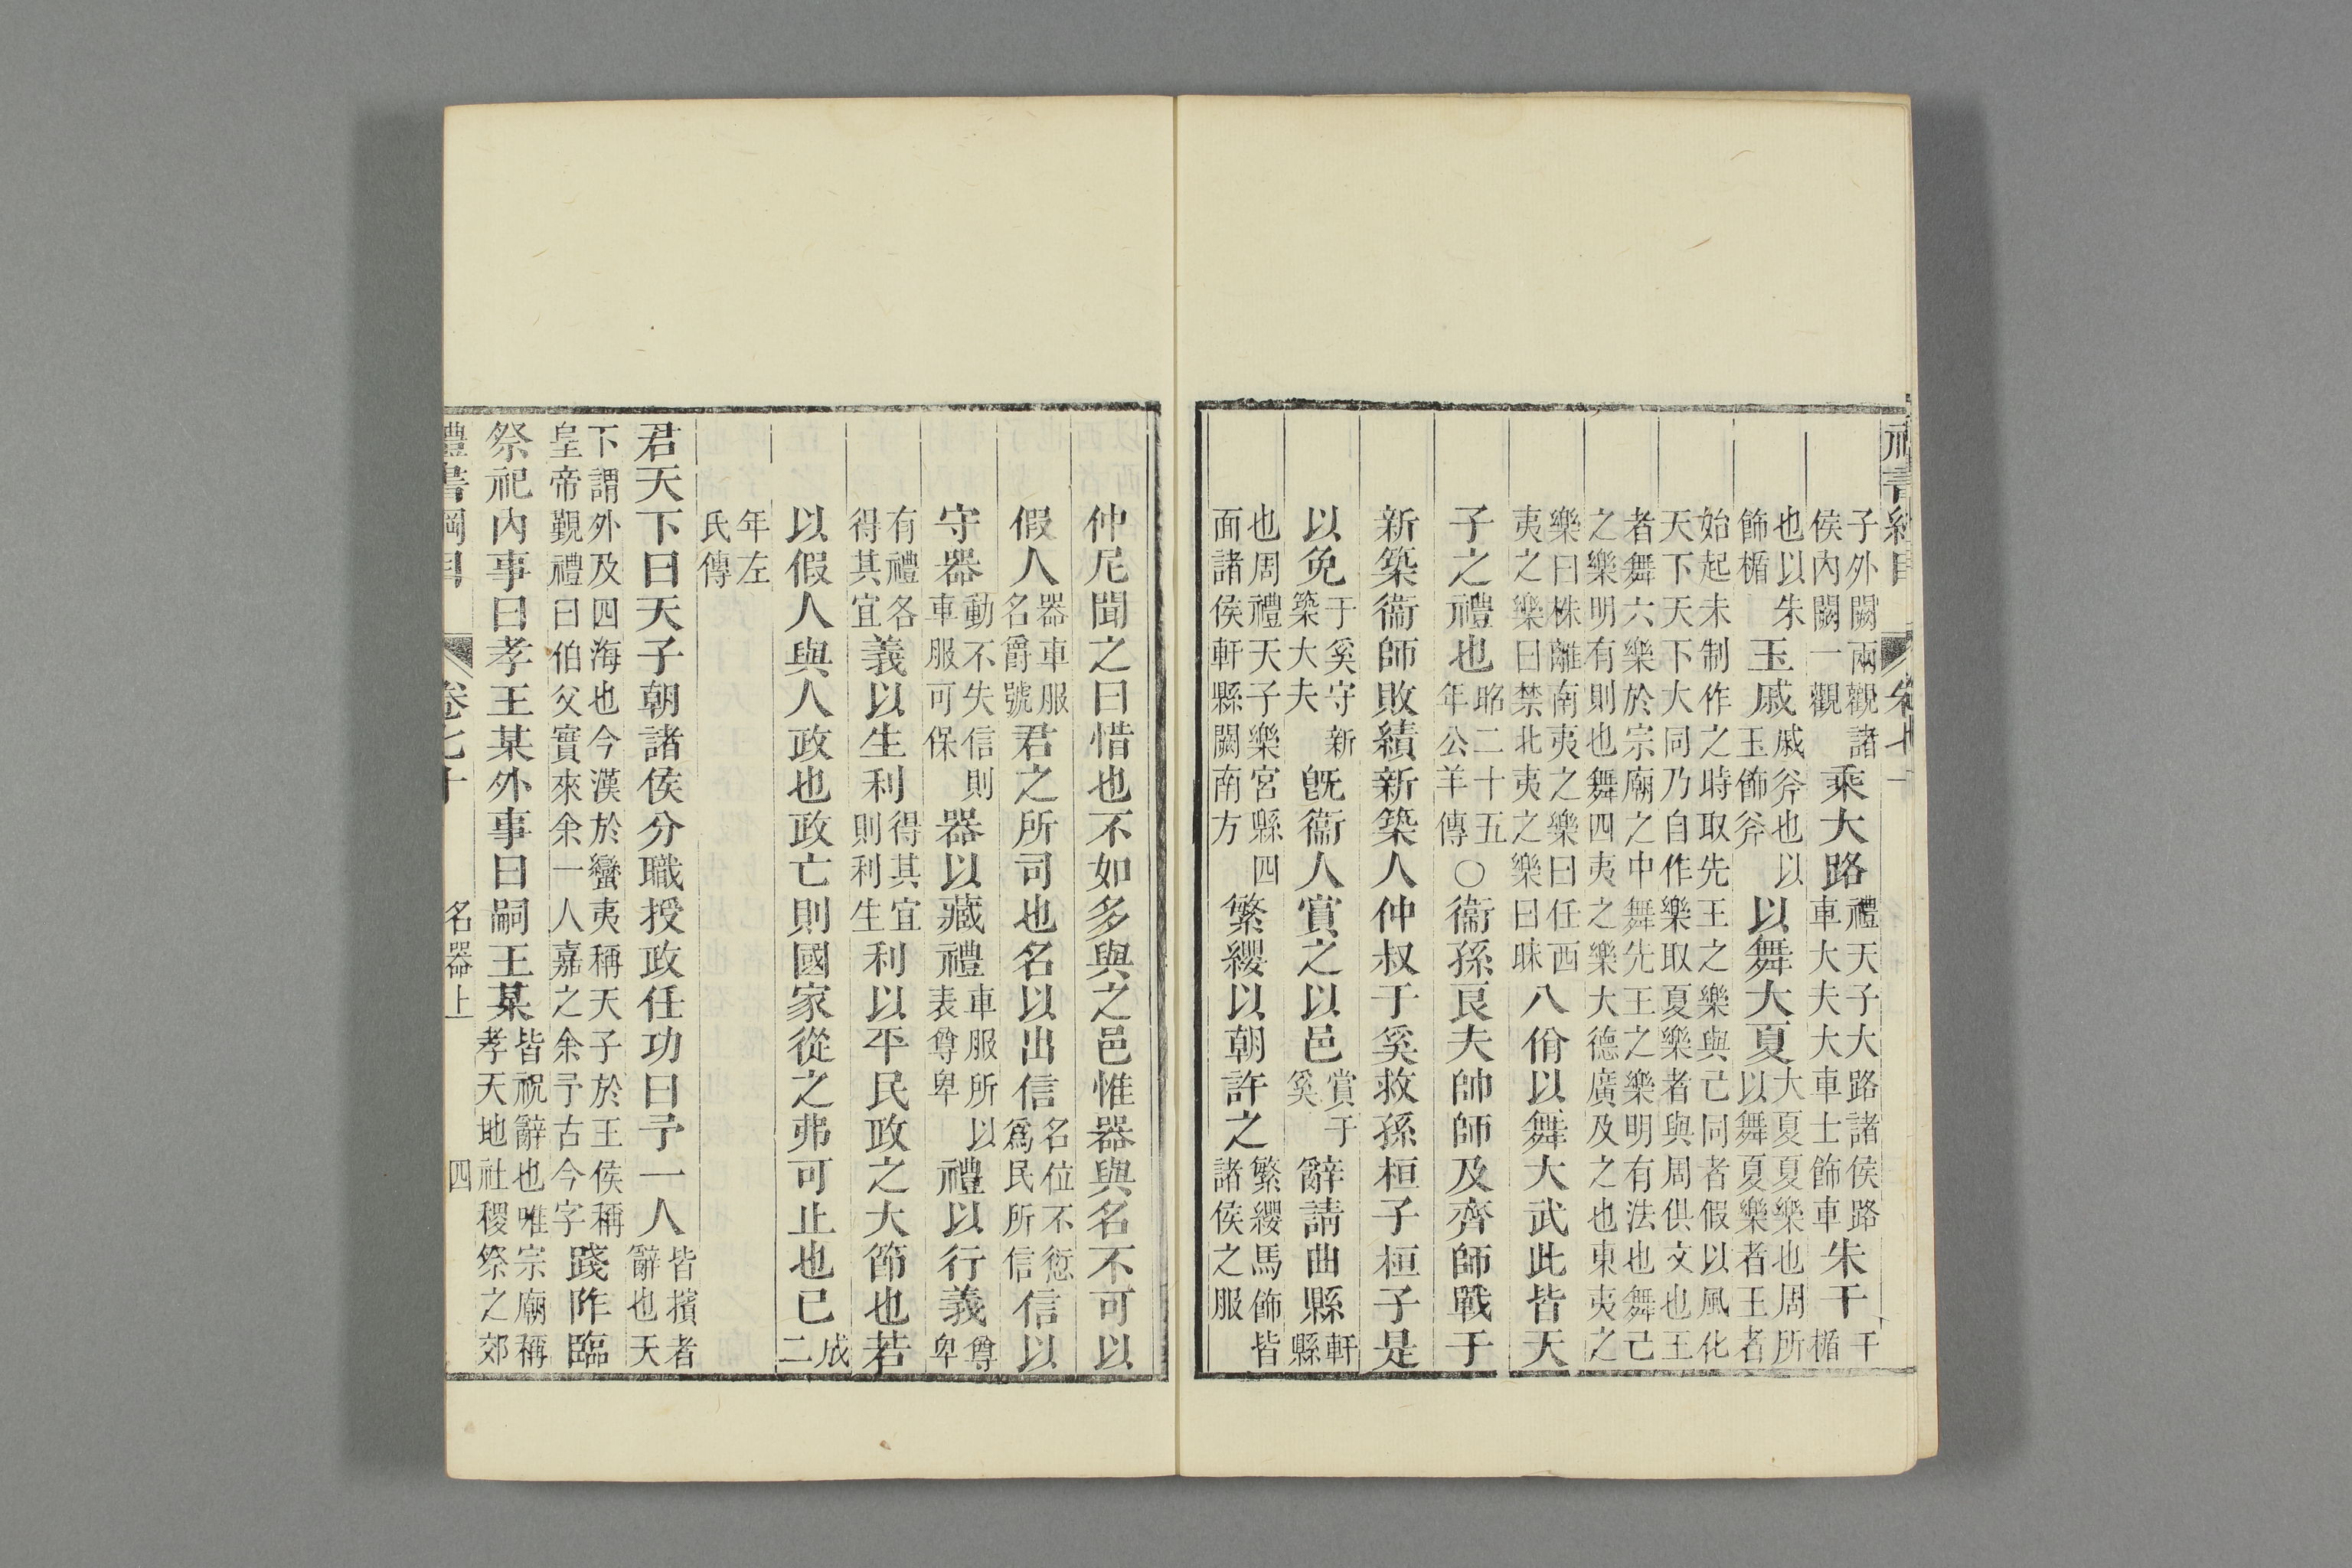 子外闕兩觀諸侯內闕一觀乘大路禮天子大路諸侯路車大夫大車士飾車朱干干楯
也以朱飾楯玉戚戚斧也以玉飾斧以舞大夏大夏夏樂也周所以舞夏樂者王者
始起未制作之時取先王之樂與己同者假以風化天下天下大同乃自作樂取夏樂者與周俱文也王
者舞六樂於宗廟之中舞先王之樂明有法也舞己之樂明有則也舞四夷之樂大德廣及之也東夷之
樂曰株離南夷之樂曰任西夷之樂曰禁北夷之樂曰昧八佾以舞大武此皆天
子之禮也昭二十五年公羊傳○衞孫良夫帥師及齊師戰于
新築衞師敗績新築人仲叔于奚救孫桓子桓子是
以免于奚守新築大夫既衞人賞之以邑賞于奚辭請曲縣軒縣
也周禮天子樂宮縣四面諸侯軒縣闕南方繁纓以朝許之繁纓馬飾皆諸侯之服
仲尼聞之曰惜也不如多與之邑惟器與名不可以
假人器車服名爵號君之所司也名以出信名位不愆爲民所信信以
守器動不失信則車服可保器以藏禮車服所以表尊卑禮以行義尊卑
有禮各得其宜義以生利得其宜則利生利以平民政之大節也若
以假人與人政也政亡則國家從之弗可止也已成二
年左氏傳
君天下曰天子朝諸侯分職授政任功曰予一人皆擯者辭也天
下謂外及四海也今漢於蠻夷稱天子於王侯稱皇帝覲禮曰伯父實來余一人嘉之余予古今字踐阼臨
祭祀內事曰孝王某外事曰嗣王某皆祝辭也唯宗廟稱孝天地社稷祭之郊
禮書綱目 卷七十 名器上 四